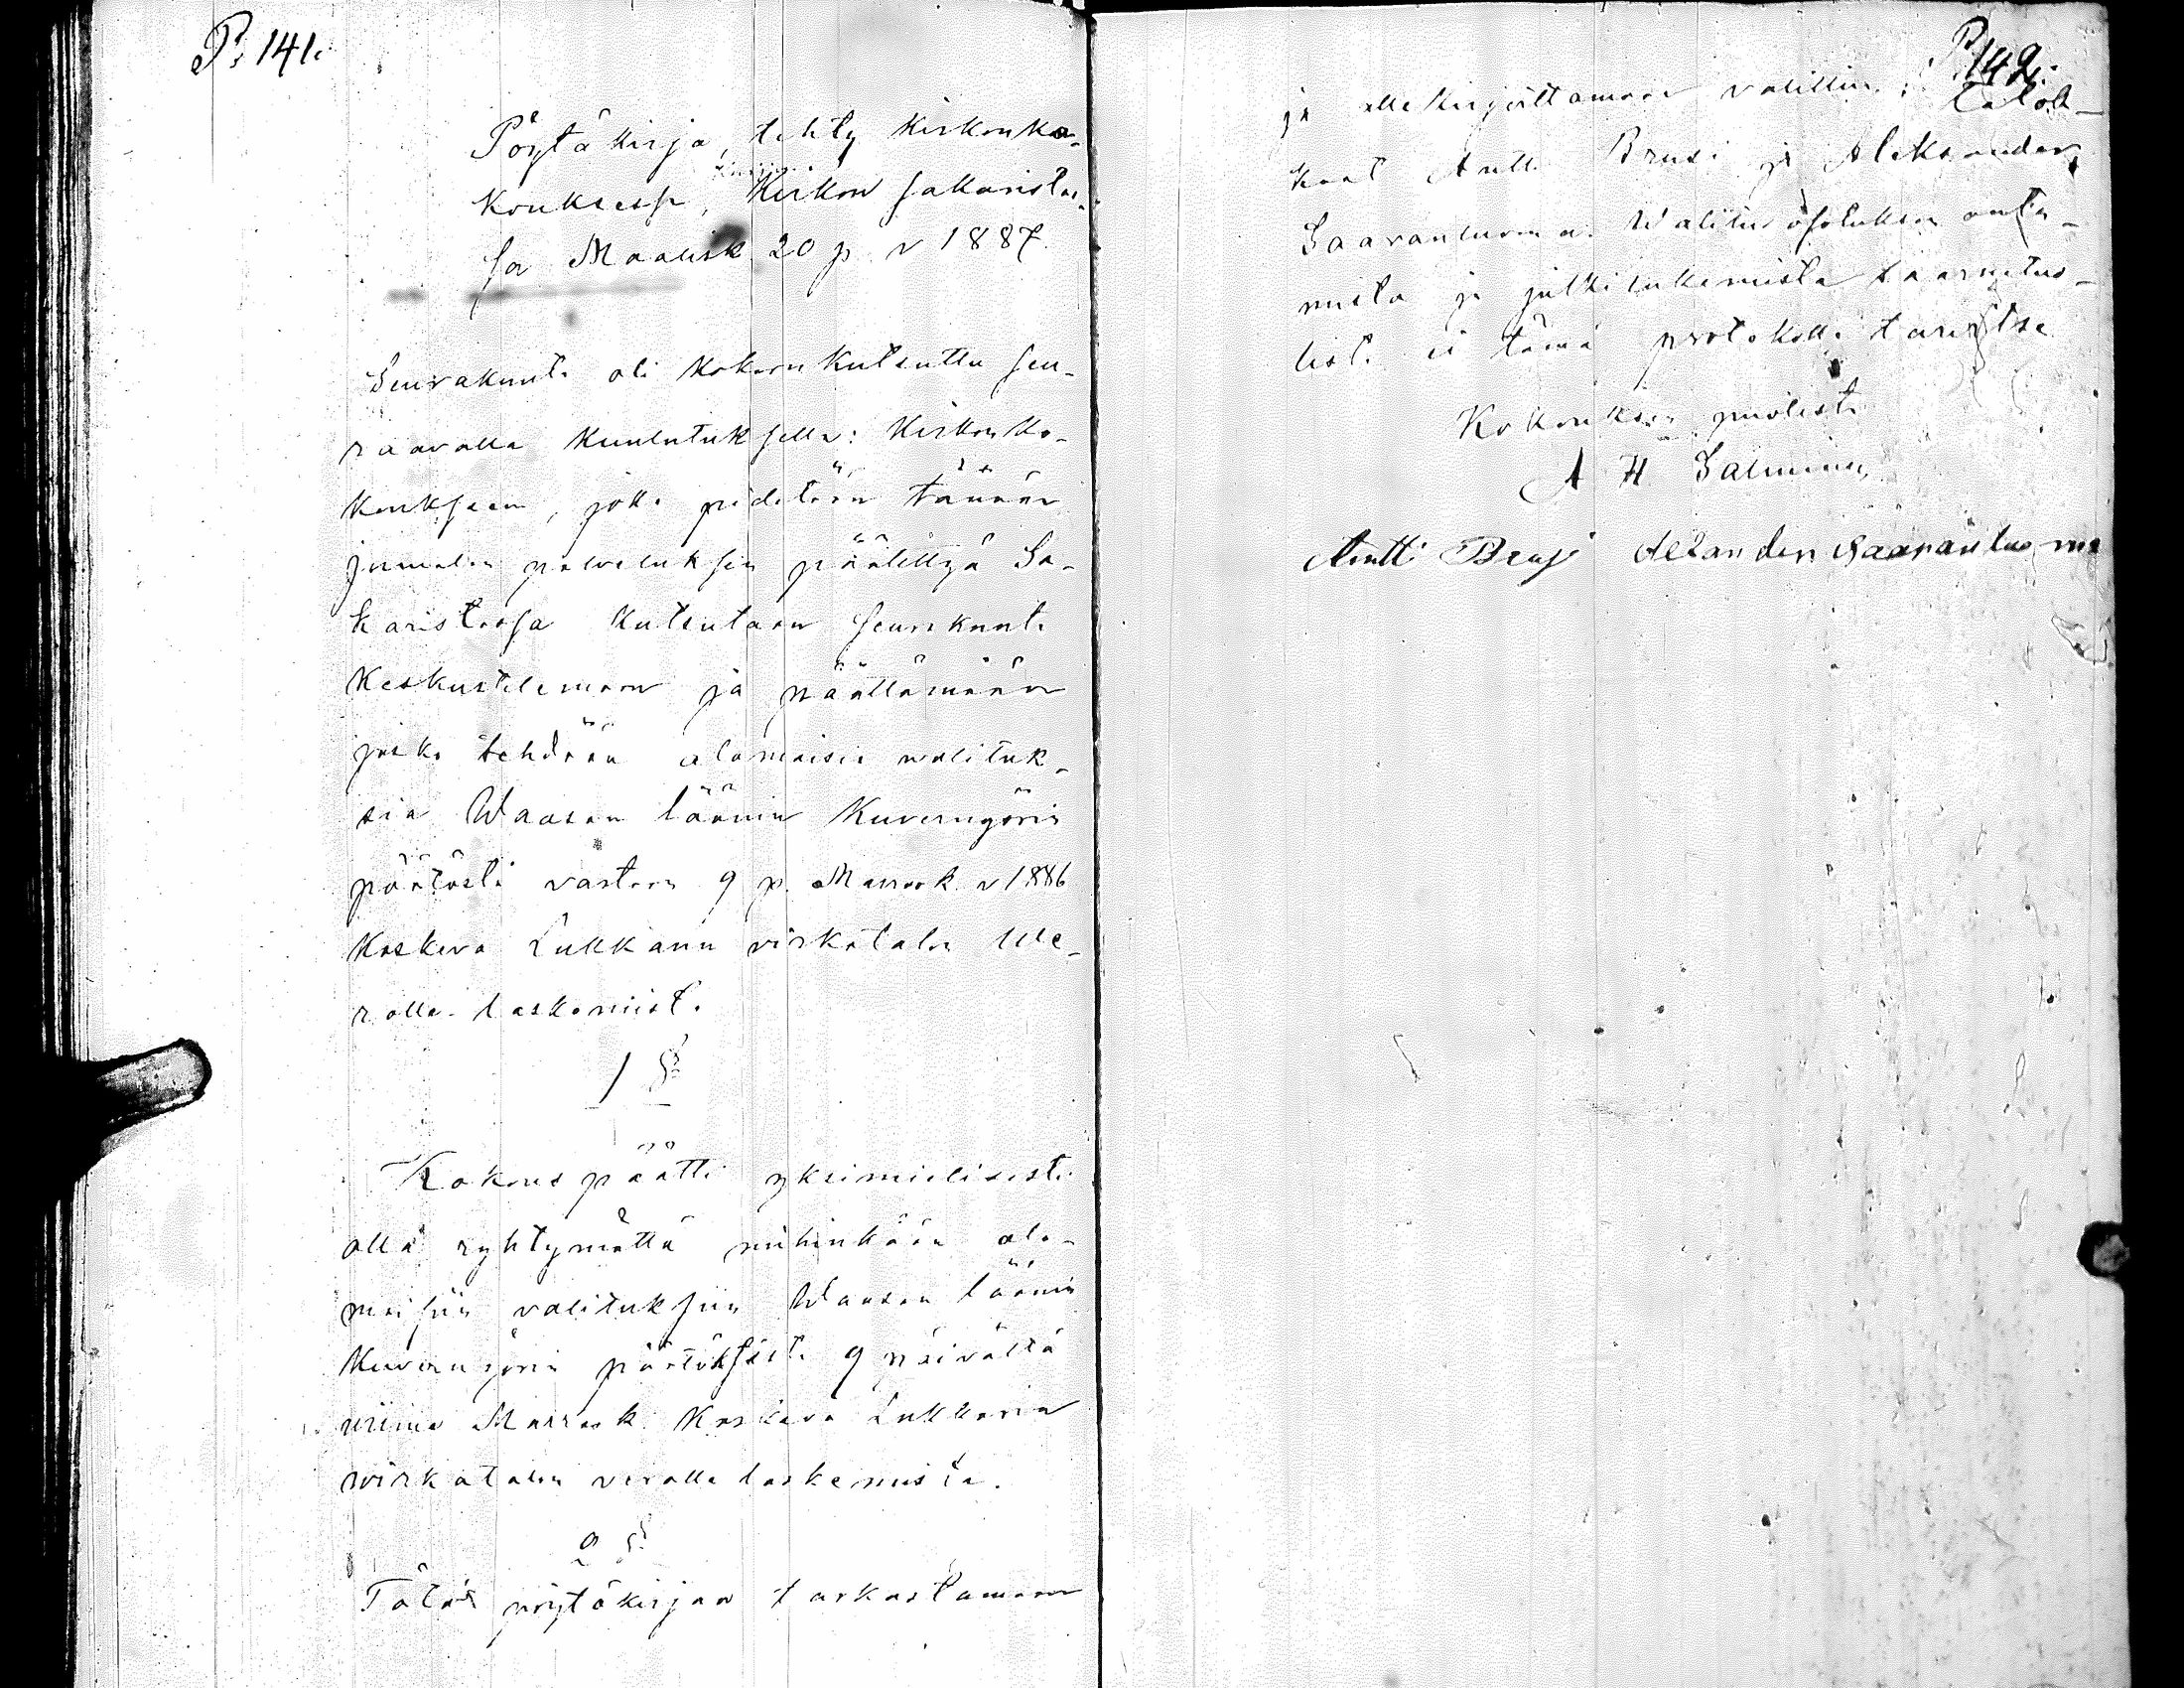 P. 141.
Pöytäkirja, tehty Kirkonko-
kouksessa, Kirkon sakastos-
sa Maalisk 20 p v 1887.
Seurakunta oli kokoonkutsuttu seu-
raavalla kuulutuksella: Kirkonko-
koukseen, joka pidetään tänään
jumalan palveluksen päätettyä Sa-
karistossa kutsutaan seurakunta
keskustelemaan ja päättämään
josko tehdään alamaisia valituk-
sia Waasan läänin Kuvernyörin
päätöstä vastaan 9 p. Marrask. v 1886
koskeva Lukkarin virkatalon We-
rolle laskemista.
1 §
Kokous päätti yksimielisesti
olla ryhtymättä mihinkään ala-
maisiin valituksiin Waasan läänin
Kuvernyörin päätöksestä 9 päivältä
viime Marrask. koskeva Lukkarin
virkatalon verolle laskemista.
2 §
Tätä pöytäkirjaa tarkastamaan
P. 142.
ja allekirjoittamaan valittiin: talol-
liset Antti Brusi ja Aleksander
Saarantuoma. Walitus osotuksen anta-
mista ja julki lukemista
tämä protokolla
Kokouksen puolesta
A H Salminen
Antti Brusi Alexander Saarantuoma